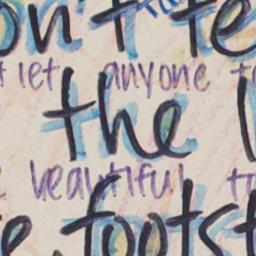 on't te
t let anyone t
the l
beautiful t
e footst